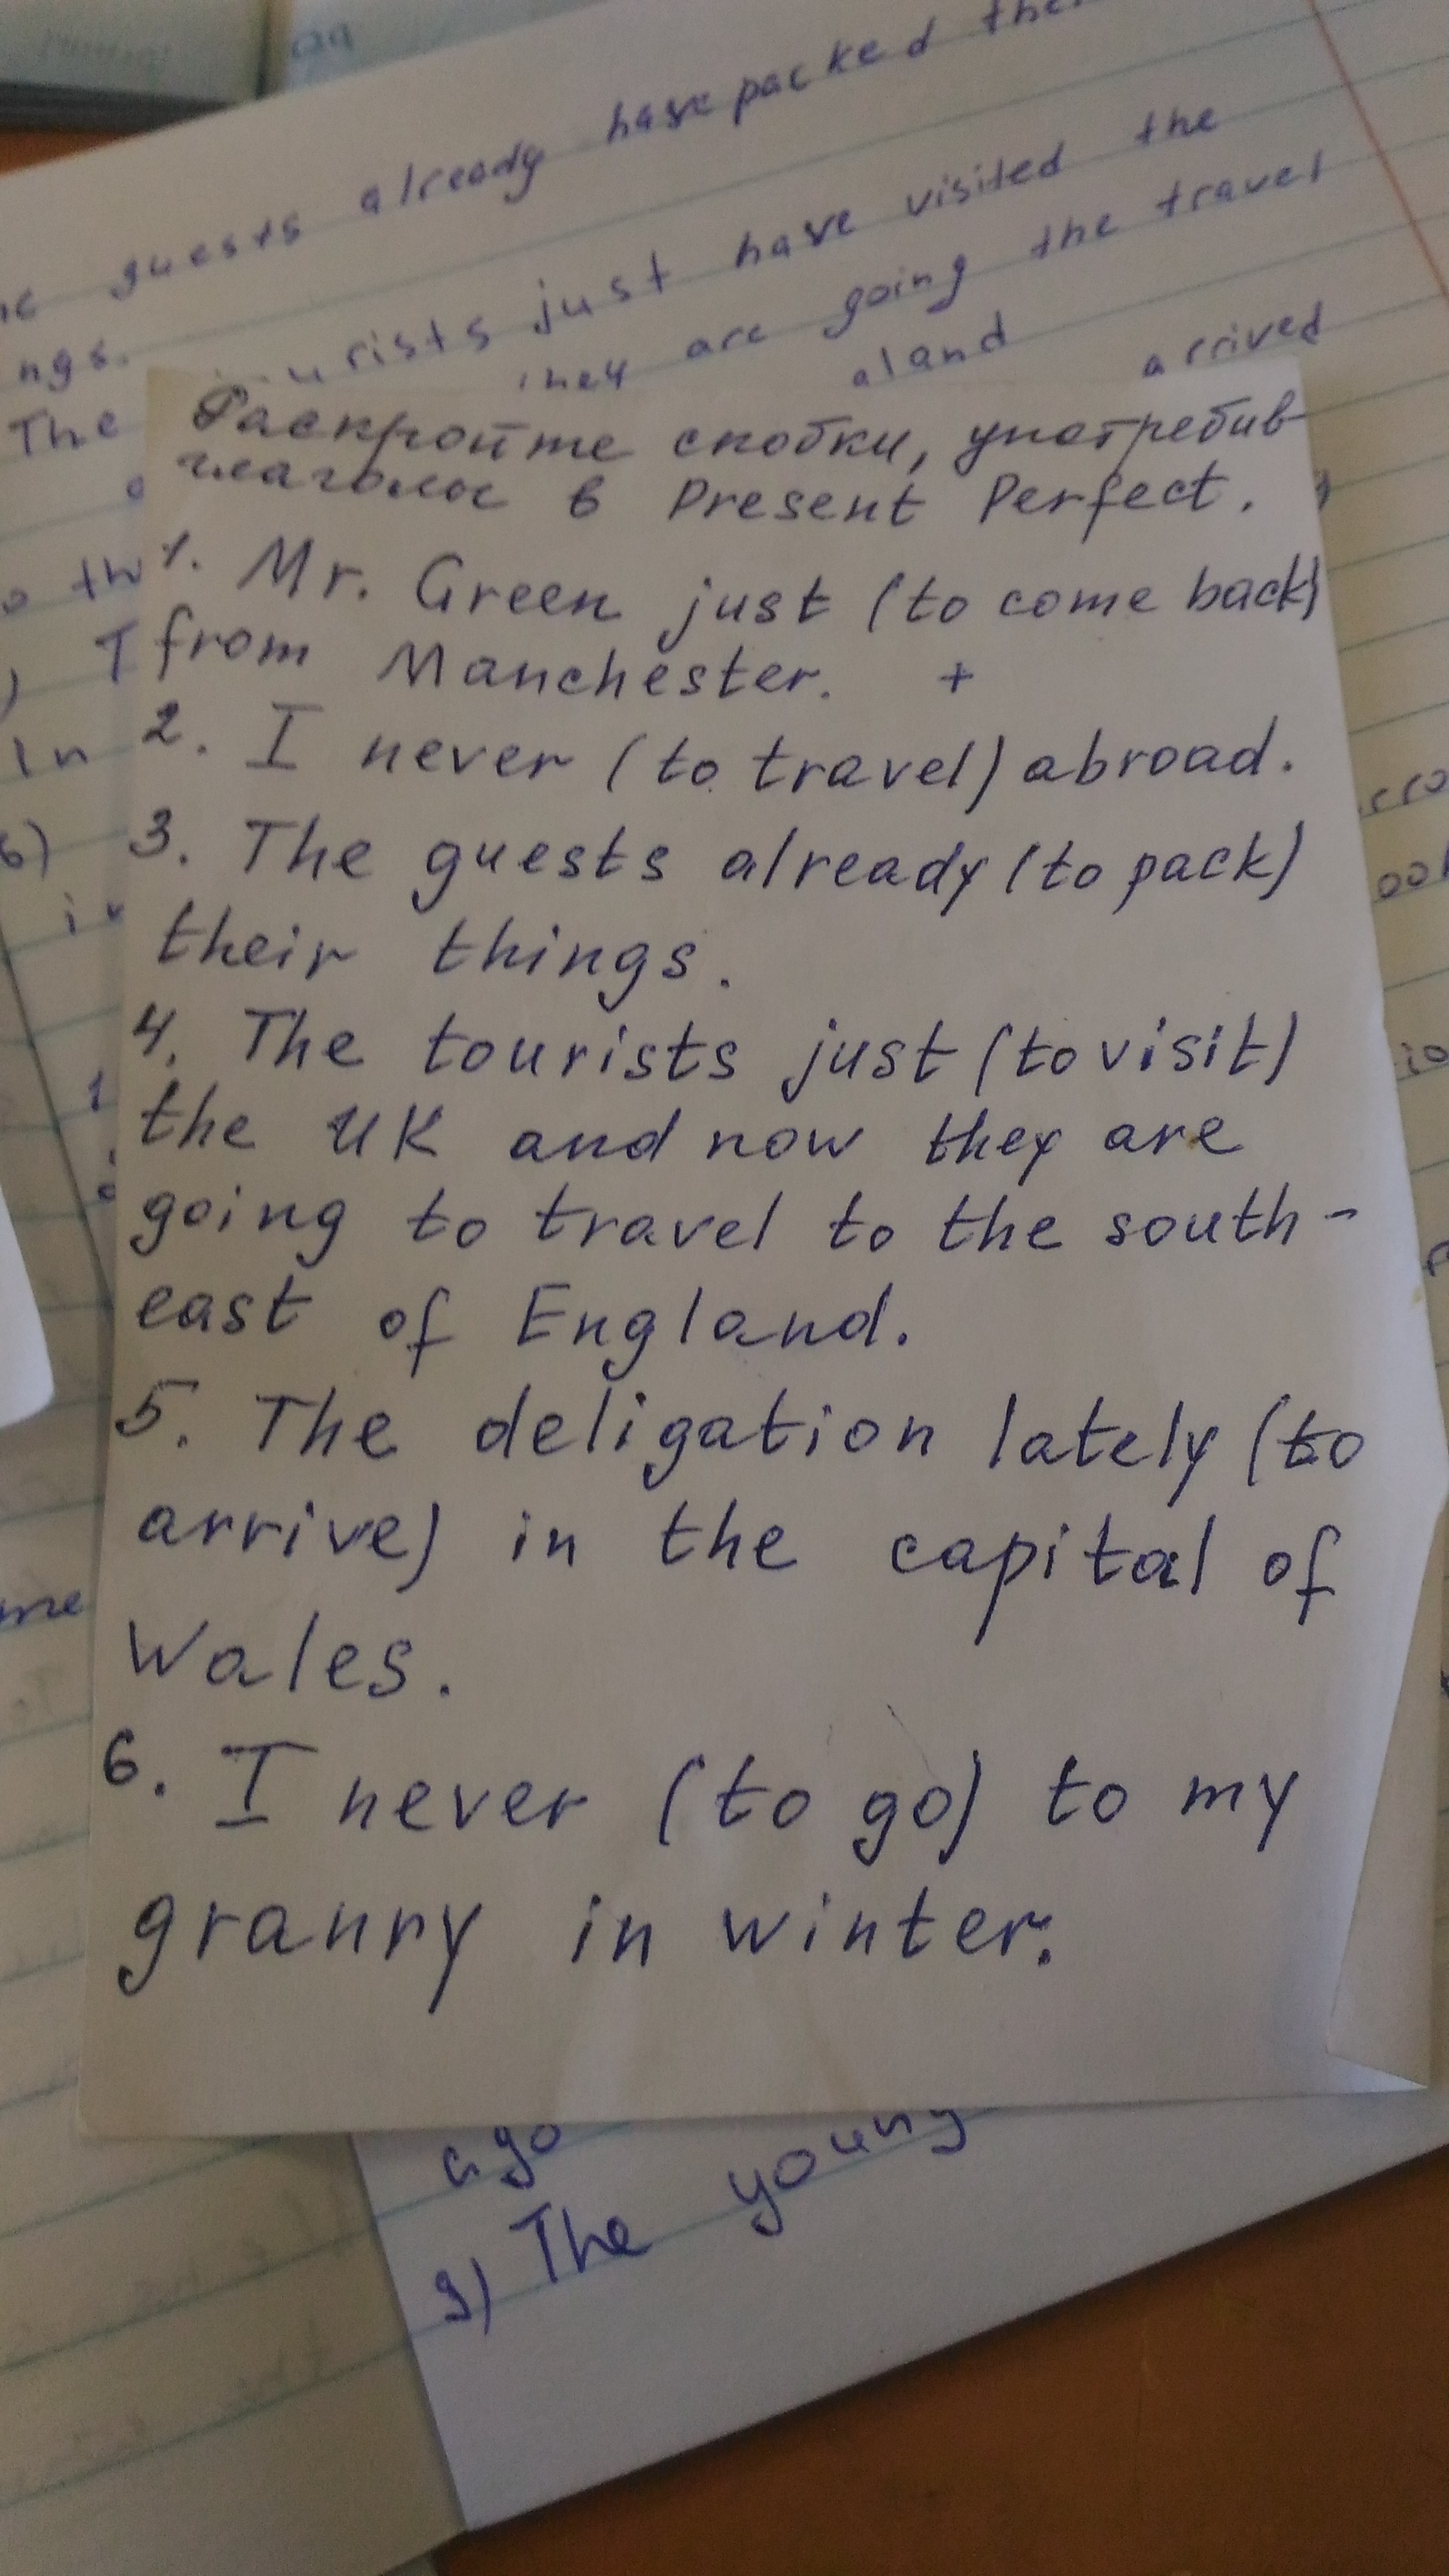 guests already have packed
ngs.
The urists just have visited the
they are going the travel
aland arrived
Раскройте скобки, употребив
глаголы в Present Perfect.
1. Mr. Green just (to come back)
from Manchester. +
2. I never (to travel) abroad.
3. The guests already (to pack)
their things.
4. The tourists just (to visit)
the UK and now they are
going to travel to the south-
east of England.
5. The deligation lately (to
arrive) in the capital of
Wales.
6. I never (to go) to my
granny in winter.
ago
9) The young